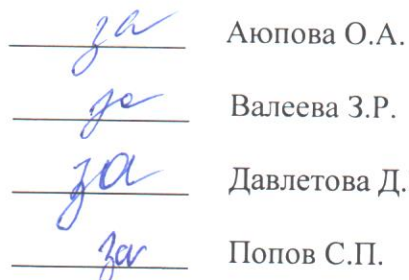 за Аюпова О.А.
за Валеева З.Р.
за Давлетова Д.
за Попов С.П.